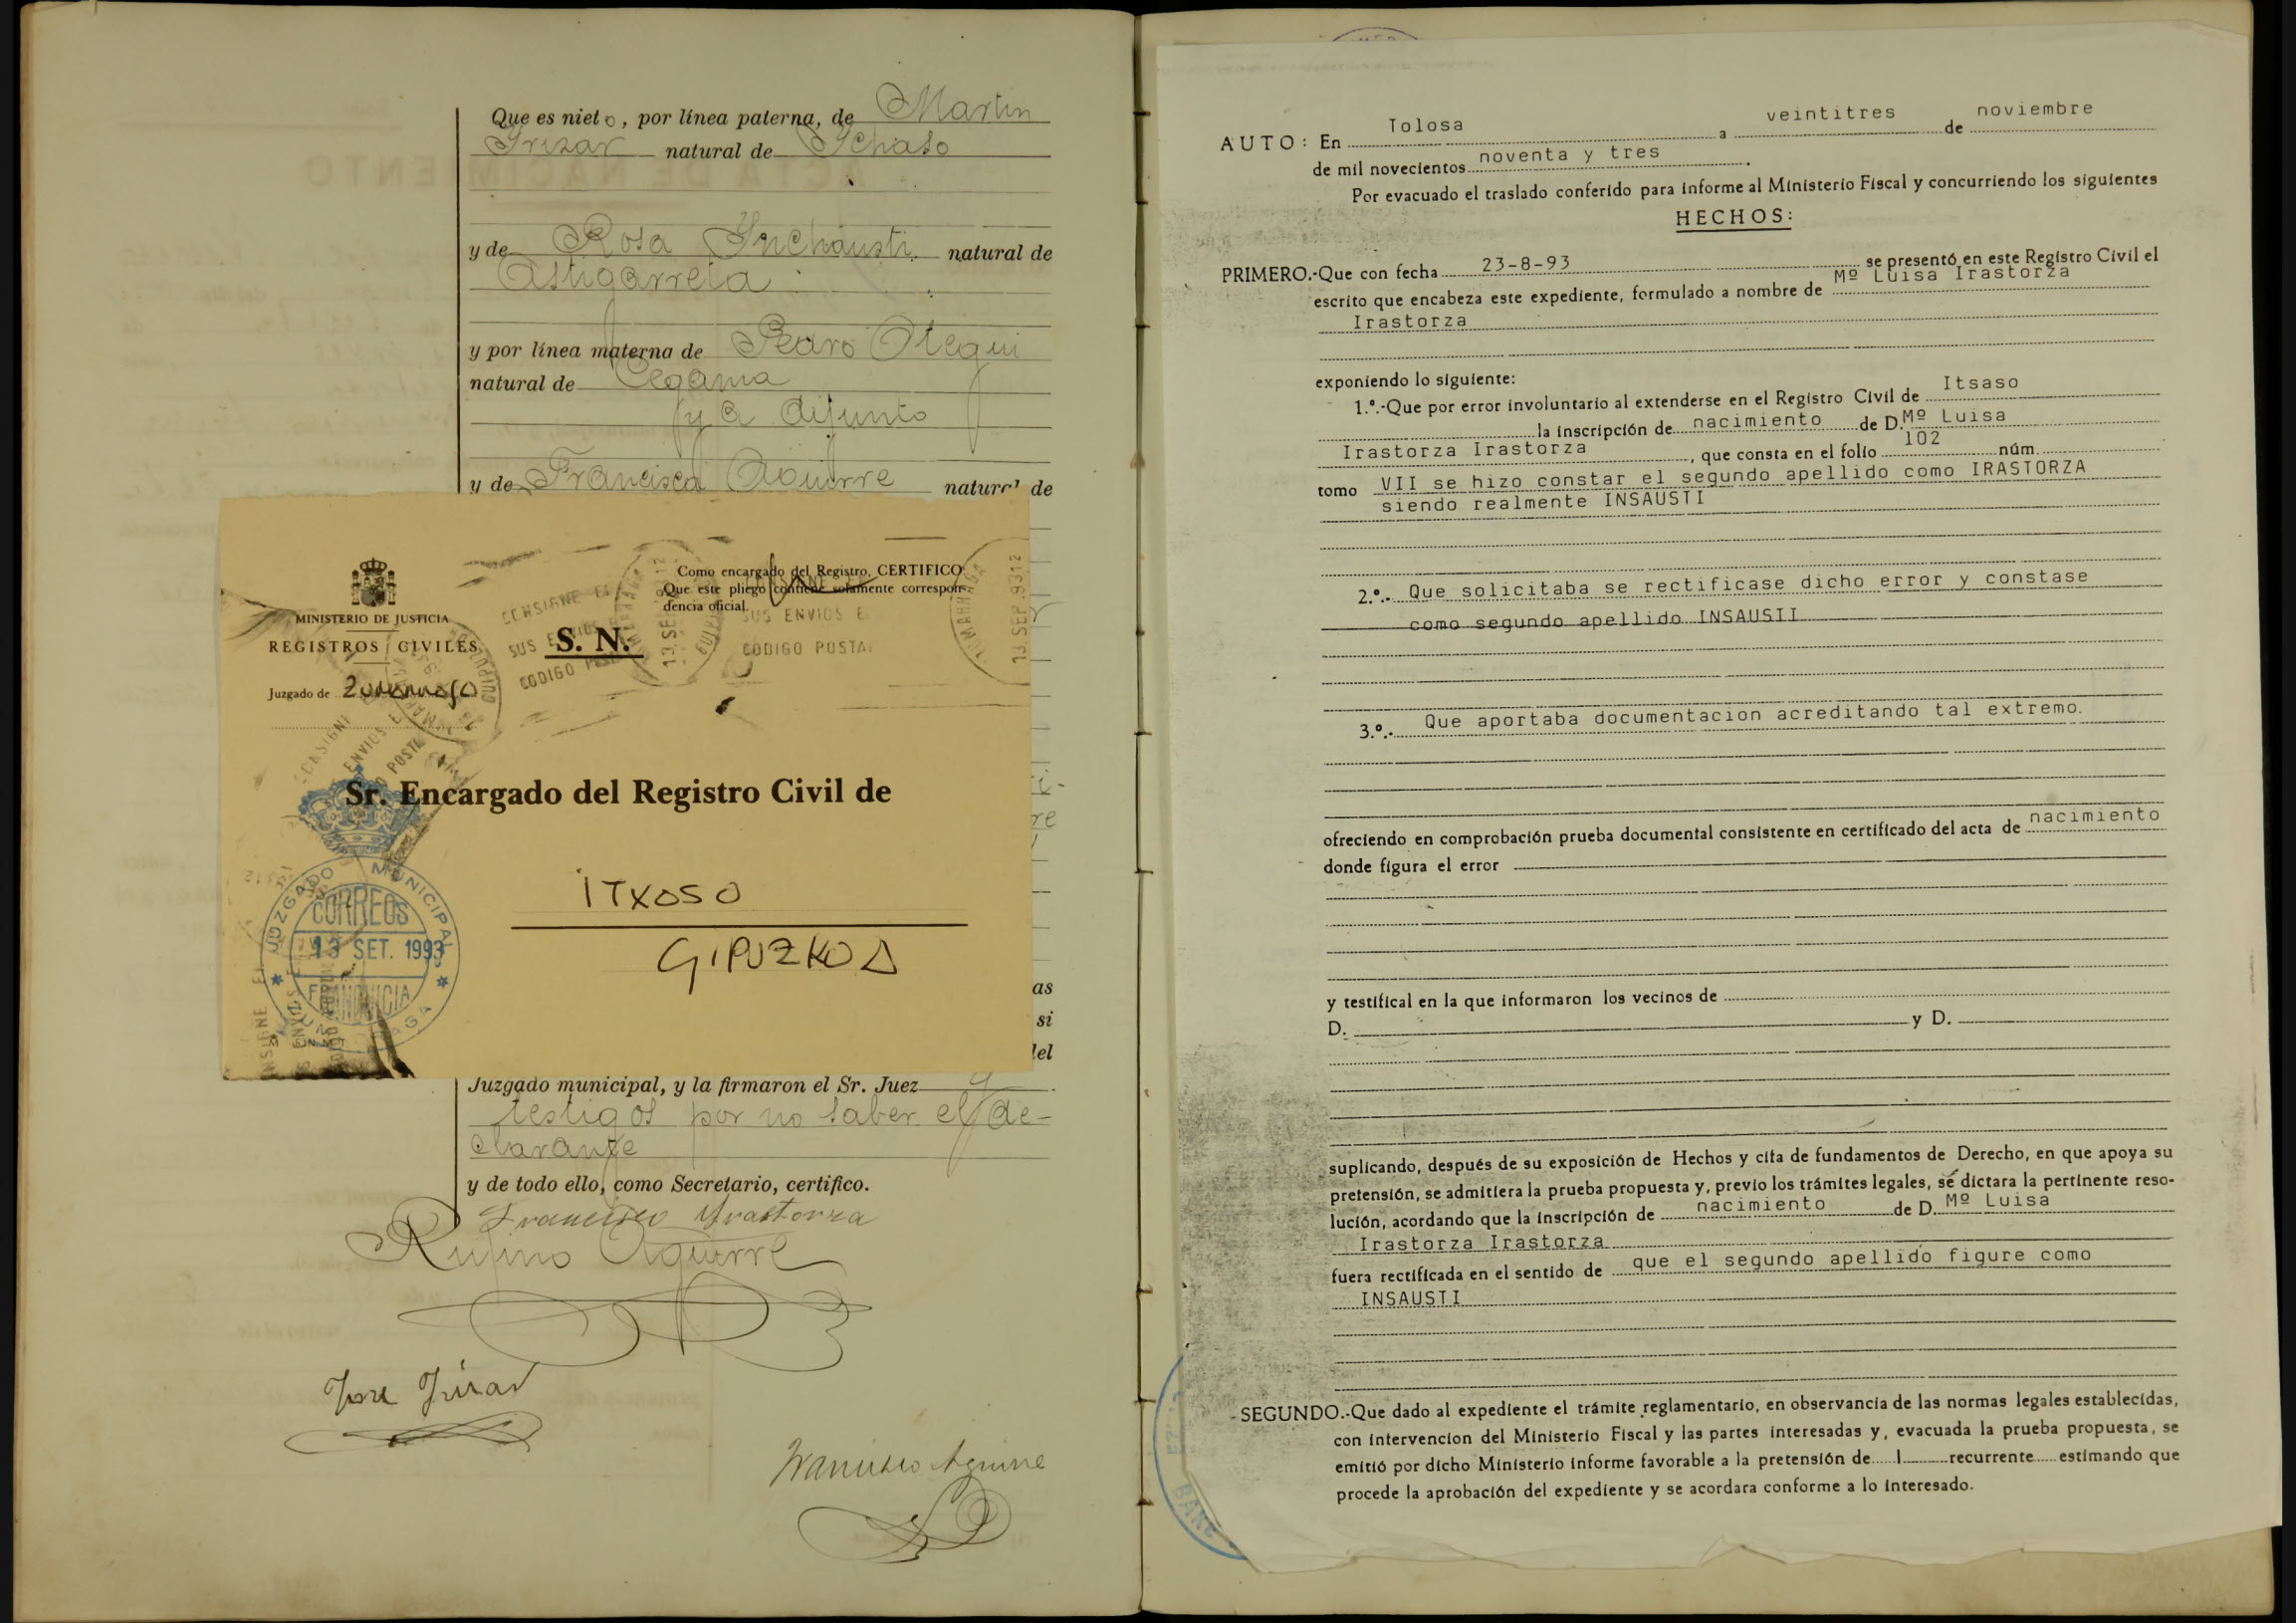 Que es nieto, por línea paterna, de Martin
Irizar natural de Ichaso
y de Rosa Inchausti natural de
Astigarreta
y por línea materna de Pedro Otegui
natural de Cegama
ya difunto
y de Francisca Aguirre natural de
MINISTERIO DE JUSTICIA
REGISTROS CIVILES
Juzgado de Zumarraga
S. N.
Como encargado del Registro, CERTIFICO:
Que este pliego contiene solamente correspon-
dencia oficial.
CONSIGNE EN
SUS ENVIOS E
CODIGO POSTA
13 SEP 93 12
Sr. Encargado del Registro Civil de
iTXOSO
GIPUZKOA
JUZGADO MUNICIPAL
CORREOS
13 SET. 1993
FRANQUICIA
as
si
del
Juzgado municipal, y la firmaron el Sr. Juez y
testigos por no saber el de-
clarante
y de todo ello, como Secretario, certifico.
Francisco Yrastorza
Rufino Aguirre
José Irizar
Francisco Aguirre
AUTO: En Tolosa a veintitres de noviembre
de mil novecientos noventa y tres.
Por evacuado el traslado conferido para informe al Ministerio Fiscal y concurriendo los siguientes
HECHOS:
PRIMERO.-Que con fecha 23-8-93 se presentó en este Registro Civil el
escrito que encabeza este expediente, formulado a nombre de Mº Luisa Irastorza
Irastorza
exponiendo lo siguiente:
1.º.-Que por error involuntario al extenderse en el Registro Civil de Itsaso
la inscripción de nacimiento de D. Mº Luisa
Irastorza Irastorza, que consta en el folio 102 núm.
tomo VII se hizo constar el segundo apellido como IRASTORZA
siendo realmente INSAUSTI
2.º.- Que solicitaba se rectificase dicho error y constase
como segundo apellido INSAUSTI
3.º.- Que aportaba documentacion acreditando tal extremo.
ofreciendo en comprobación prueba documental consistente en certificado del acta de nacimiento
donde figura el error
y testifical en la que informaron los vecinos de
D. y D.
suplicando, después de su exposición de Hechos y cita de fundamentos de Derecho, en que apoya su
pretensión, se admitiera la prueba propuesta y, previo los trámites legales, se dictara la pertinente reso-
lución, acordando que la inscripción de nacimiento de D. Mº Luisa
Irastorza Irastorza
fuera rectificada en el sentido de que el segundo apellido figure como
INSAUSTI
SEGUNDO.-Que dado al expediente el trámite reglamentario, en observancia de las normas legales establecidas,
con intervencion del Ministerio Fiscal y las partes interesadas y, evacuada la prueba propuesta, se
emitió por dicho Ministerio informe favorable a la pretensión de l recurrente estimando que
procede la aprobación del expediente y se acordara conforme a lo interesado.